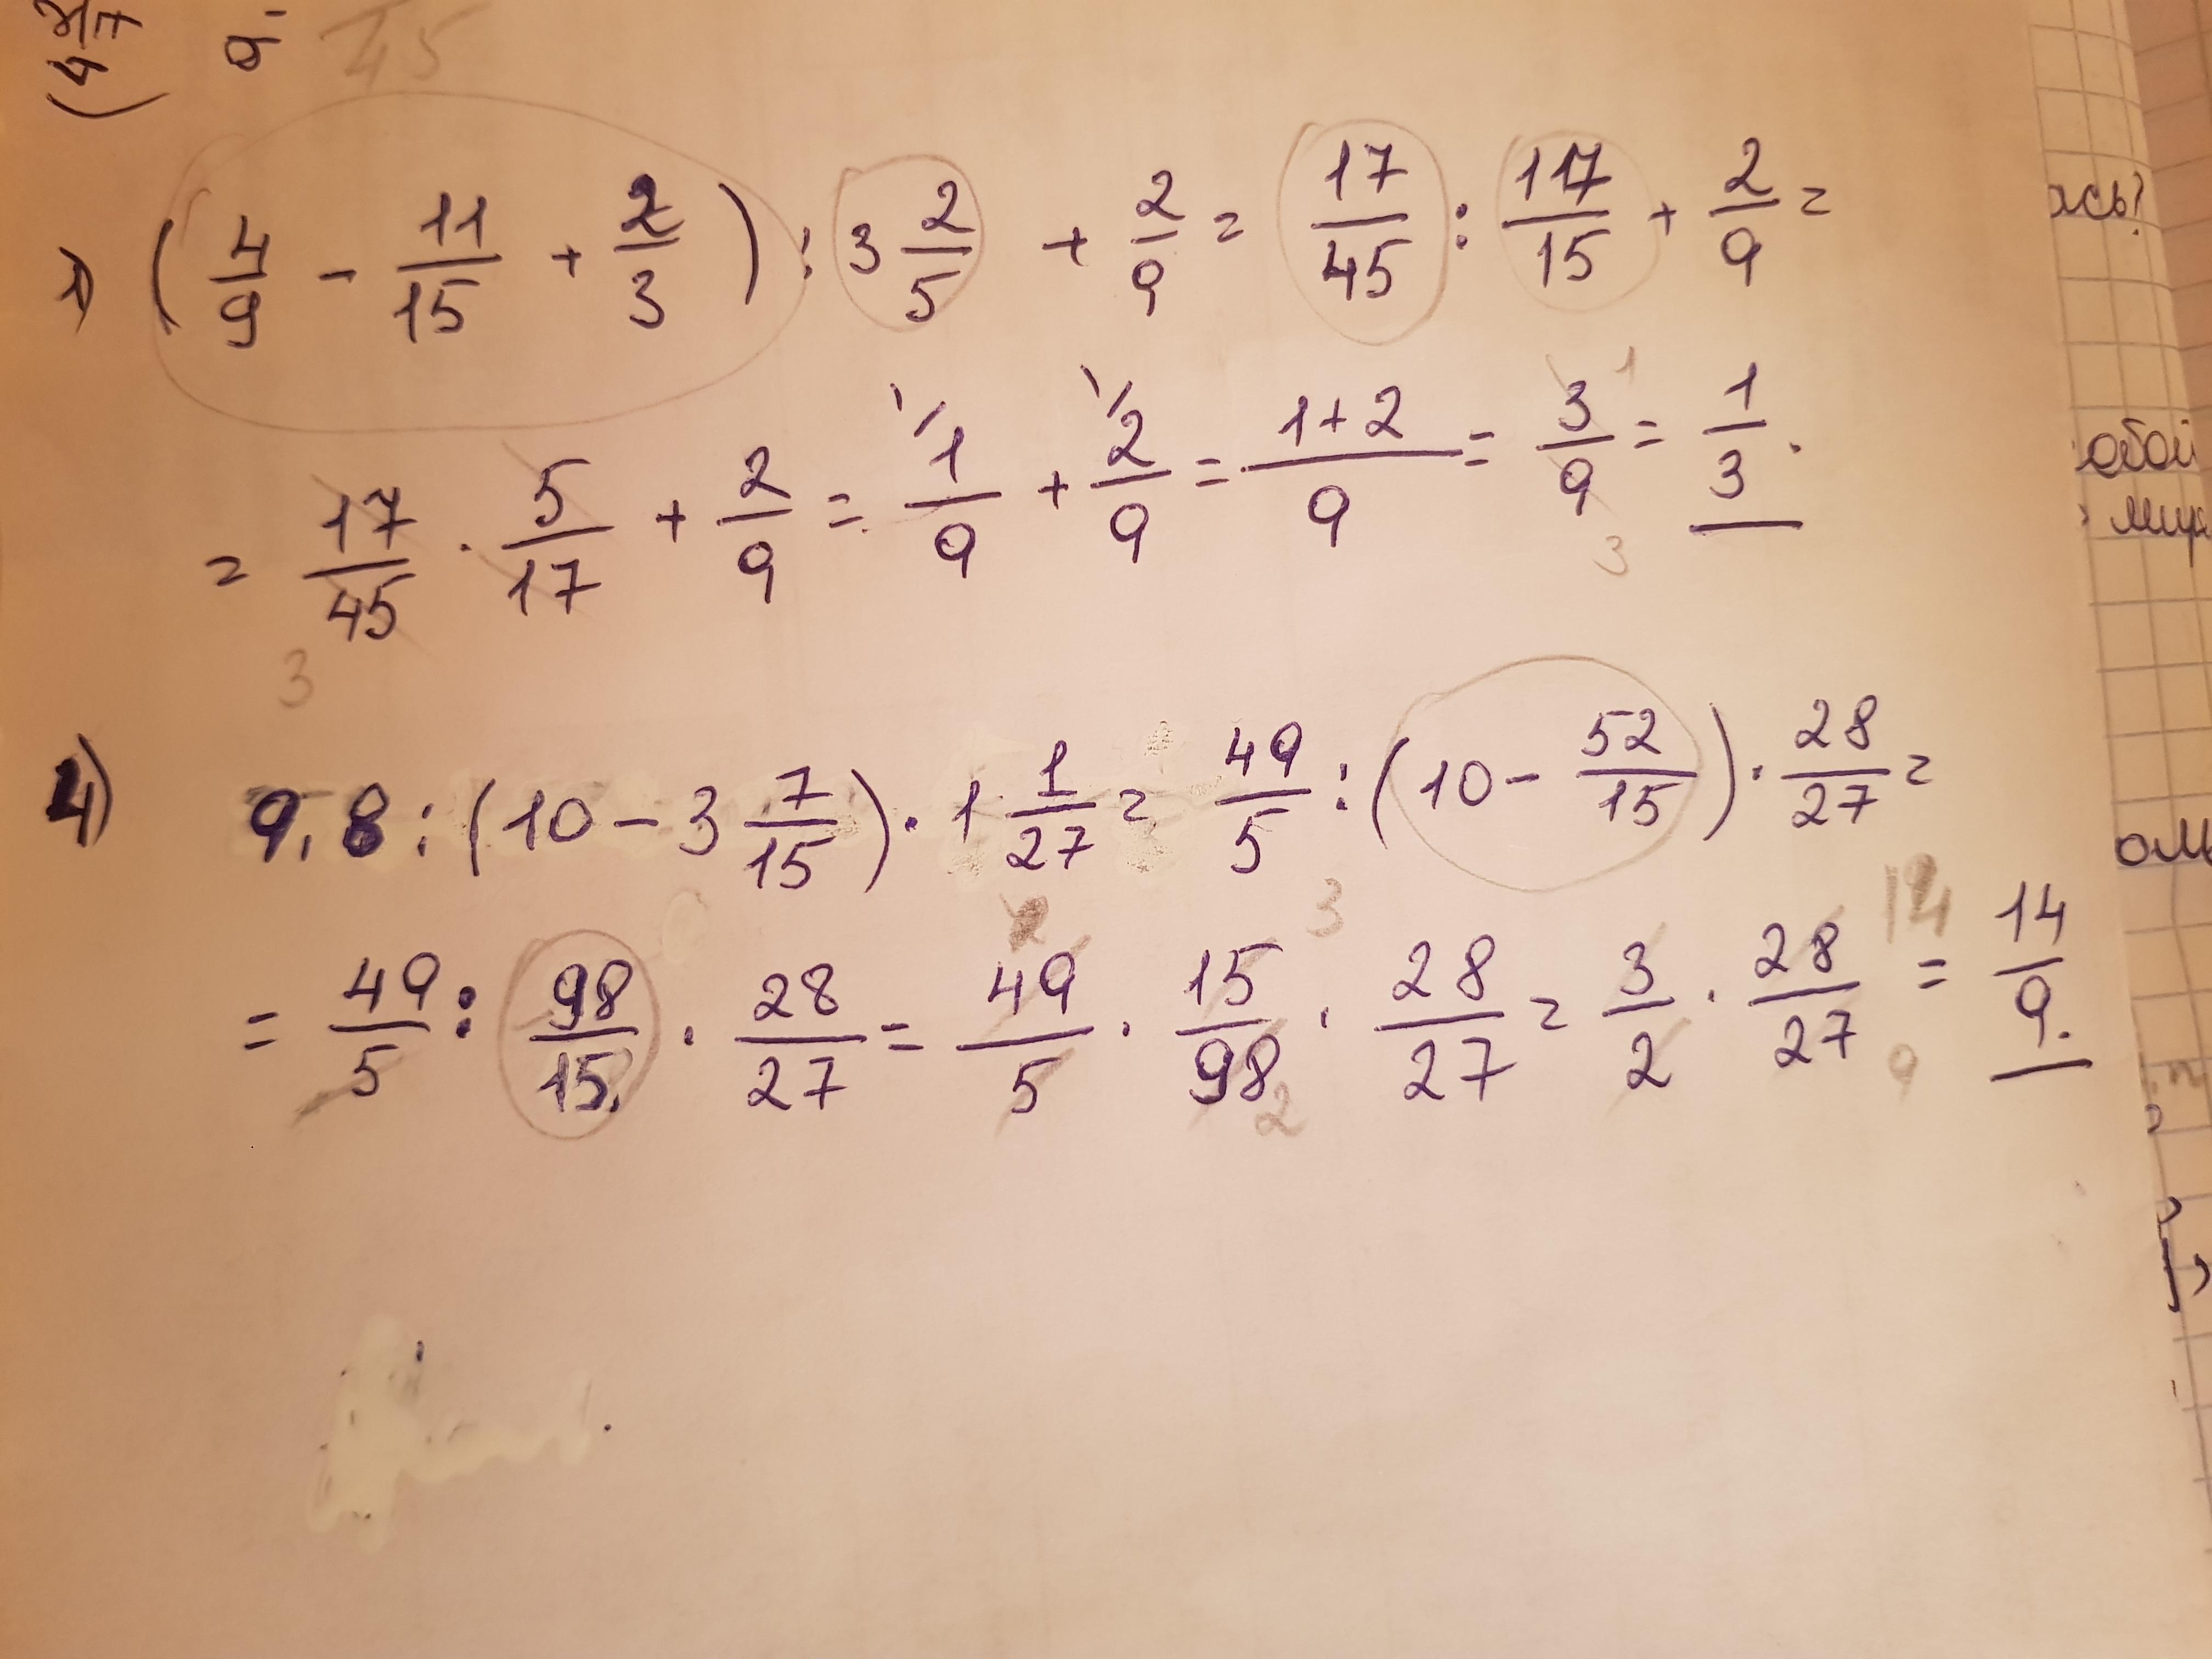 45
1) (4/9 - 11/15 + 2/3) : 3 2/5 + 2/9 = 17/45 : 117/15 + 2/9 =
= 17/45 · 5/17 + 2/9 = 1/9 + 2/9 = 1+2/9 = 3/9 = 1/3.
3 1 3
4) 9,8 : (10 - 3 7/15) · 1 1/27 = 49/5 : (10 - 52/15) · 28/27 =
= 49/5 : 98/15 · 28/27 = 49/5 · 15/98 · 28/27 = 3/2 · 28/27 = 14/9.
3 2 14 9
ась?
обой